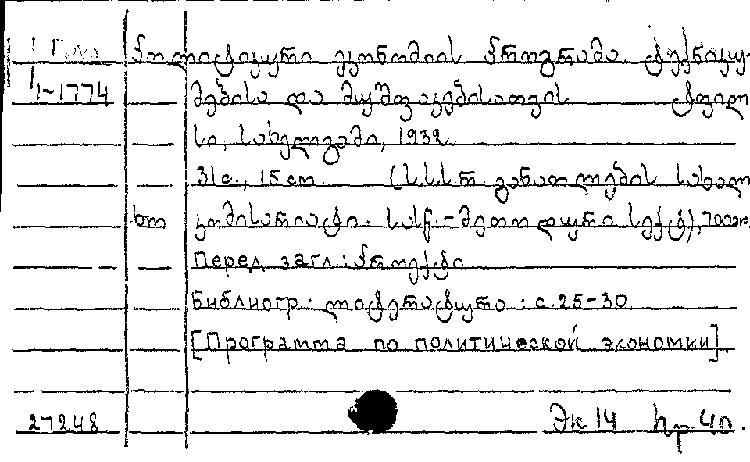 პოლიტიკური ეკონომიის პროგრამა ტექნიკუ-
1-1774 მებისა და მუშფაკებისათვის ტფილი
სი, სახელგამი, 1932
31с., 15 cm (ს.ს.ს.რ. განათლების სახალ
კომისარიატი. სას.-მეთოდური სექტ), 700
Перед загл.: პროექტი
Библиогр: ლიტერატურა: с. 25-30
[Программа по политической экономки]
27248 Эк 14